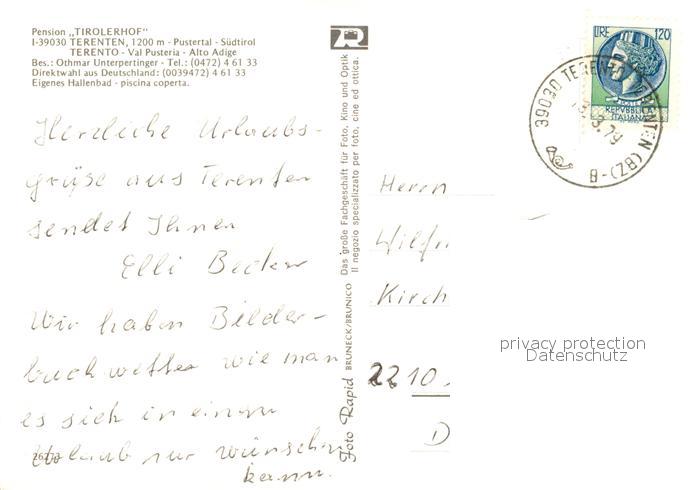 Pension „TIROLERHOF"
I-39030 TERENTEN, 1200 m - Pustertal - Südtirol
TERENTO - Val Pusteria - Alto Adige
Bes.: Othmar Unterpertinger - Tel.: (0472) 4 61 33
Direktwahl aus Deutschland: (0039472) 4 61 33
Eigenes Hallenbad - piscina coperta.
Herzliche Urlaubs-
grüße aus Terenten
sendet Ihnen
Elli Becker
Wir haben Bilder-
buchwetter wie man
es sich in einem
Urlaub nur wünschen
kann.
26273
Foto Rapid BRUNECK/BRUNICO
Das große Fachgeschäft für Foto, Kino und Optik
Il negozio specializzato per foto, cine ed ottica.
LIRE 120
REPVBBLICA
ITALIANA
39030 TERENTO TERENTEN (BZ)-B
.8.79
Herrn
Wilfr
Kirch
2210.
D
privacy protection
Datenschutz